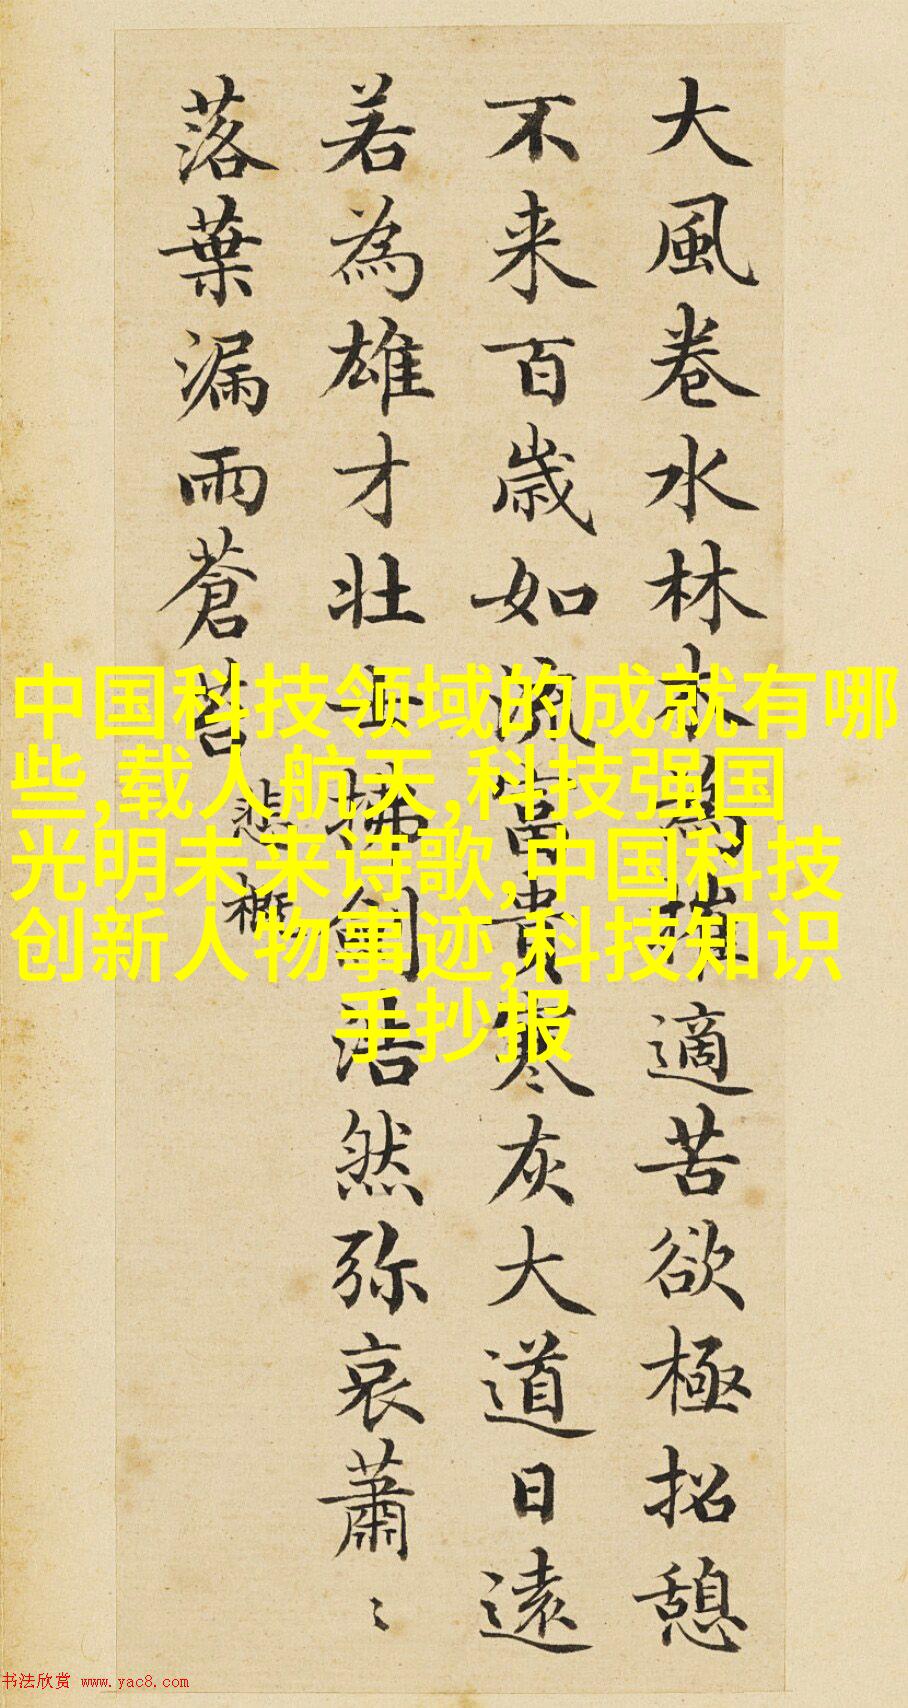 大風卷水林木為摧適苦欲極招憩
不来百歳如流富貴寒灰大道日遠
若為雄才壮士拂劍浩然弥哀蕭〻
落葉漏雨蒼苔
悲概
中国科技领域的成就有哪
些,载人航天,科技强国
光明未来诗歌,中国科技
创新人物事迹,科技知识
手抄报
书法欣赏 www.yac8.com